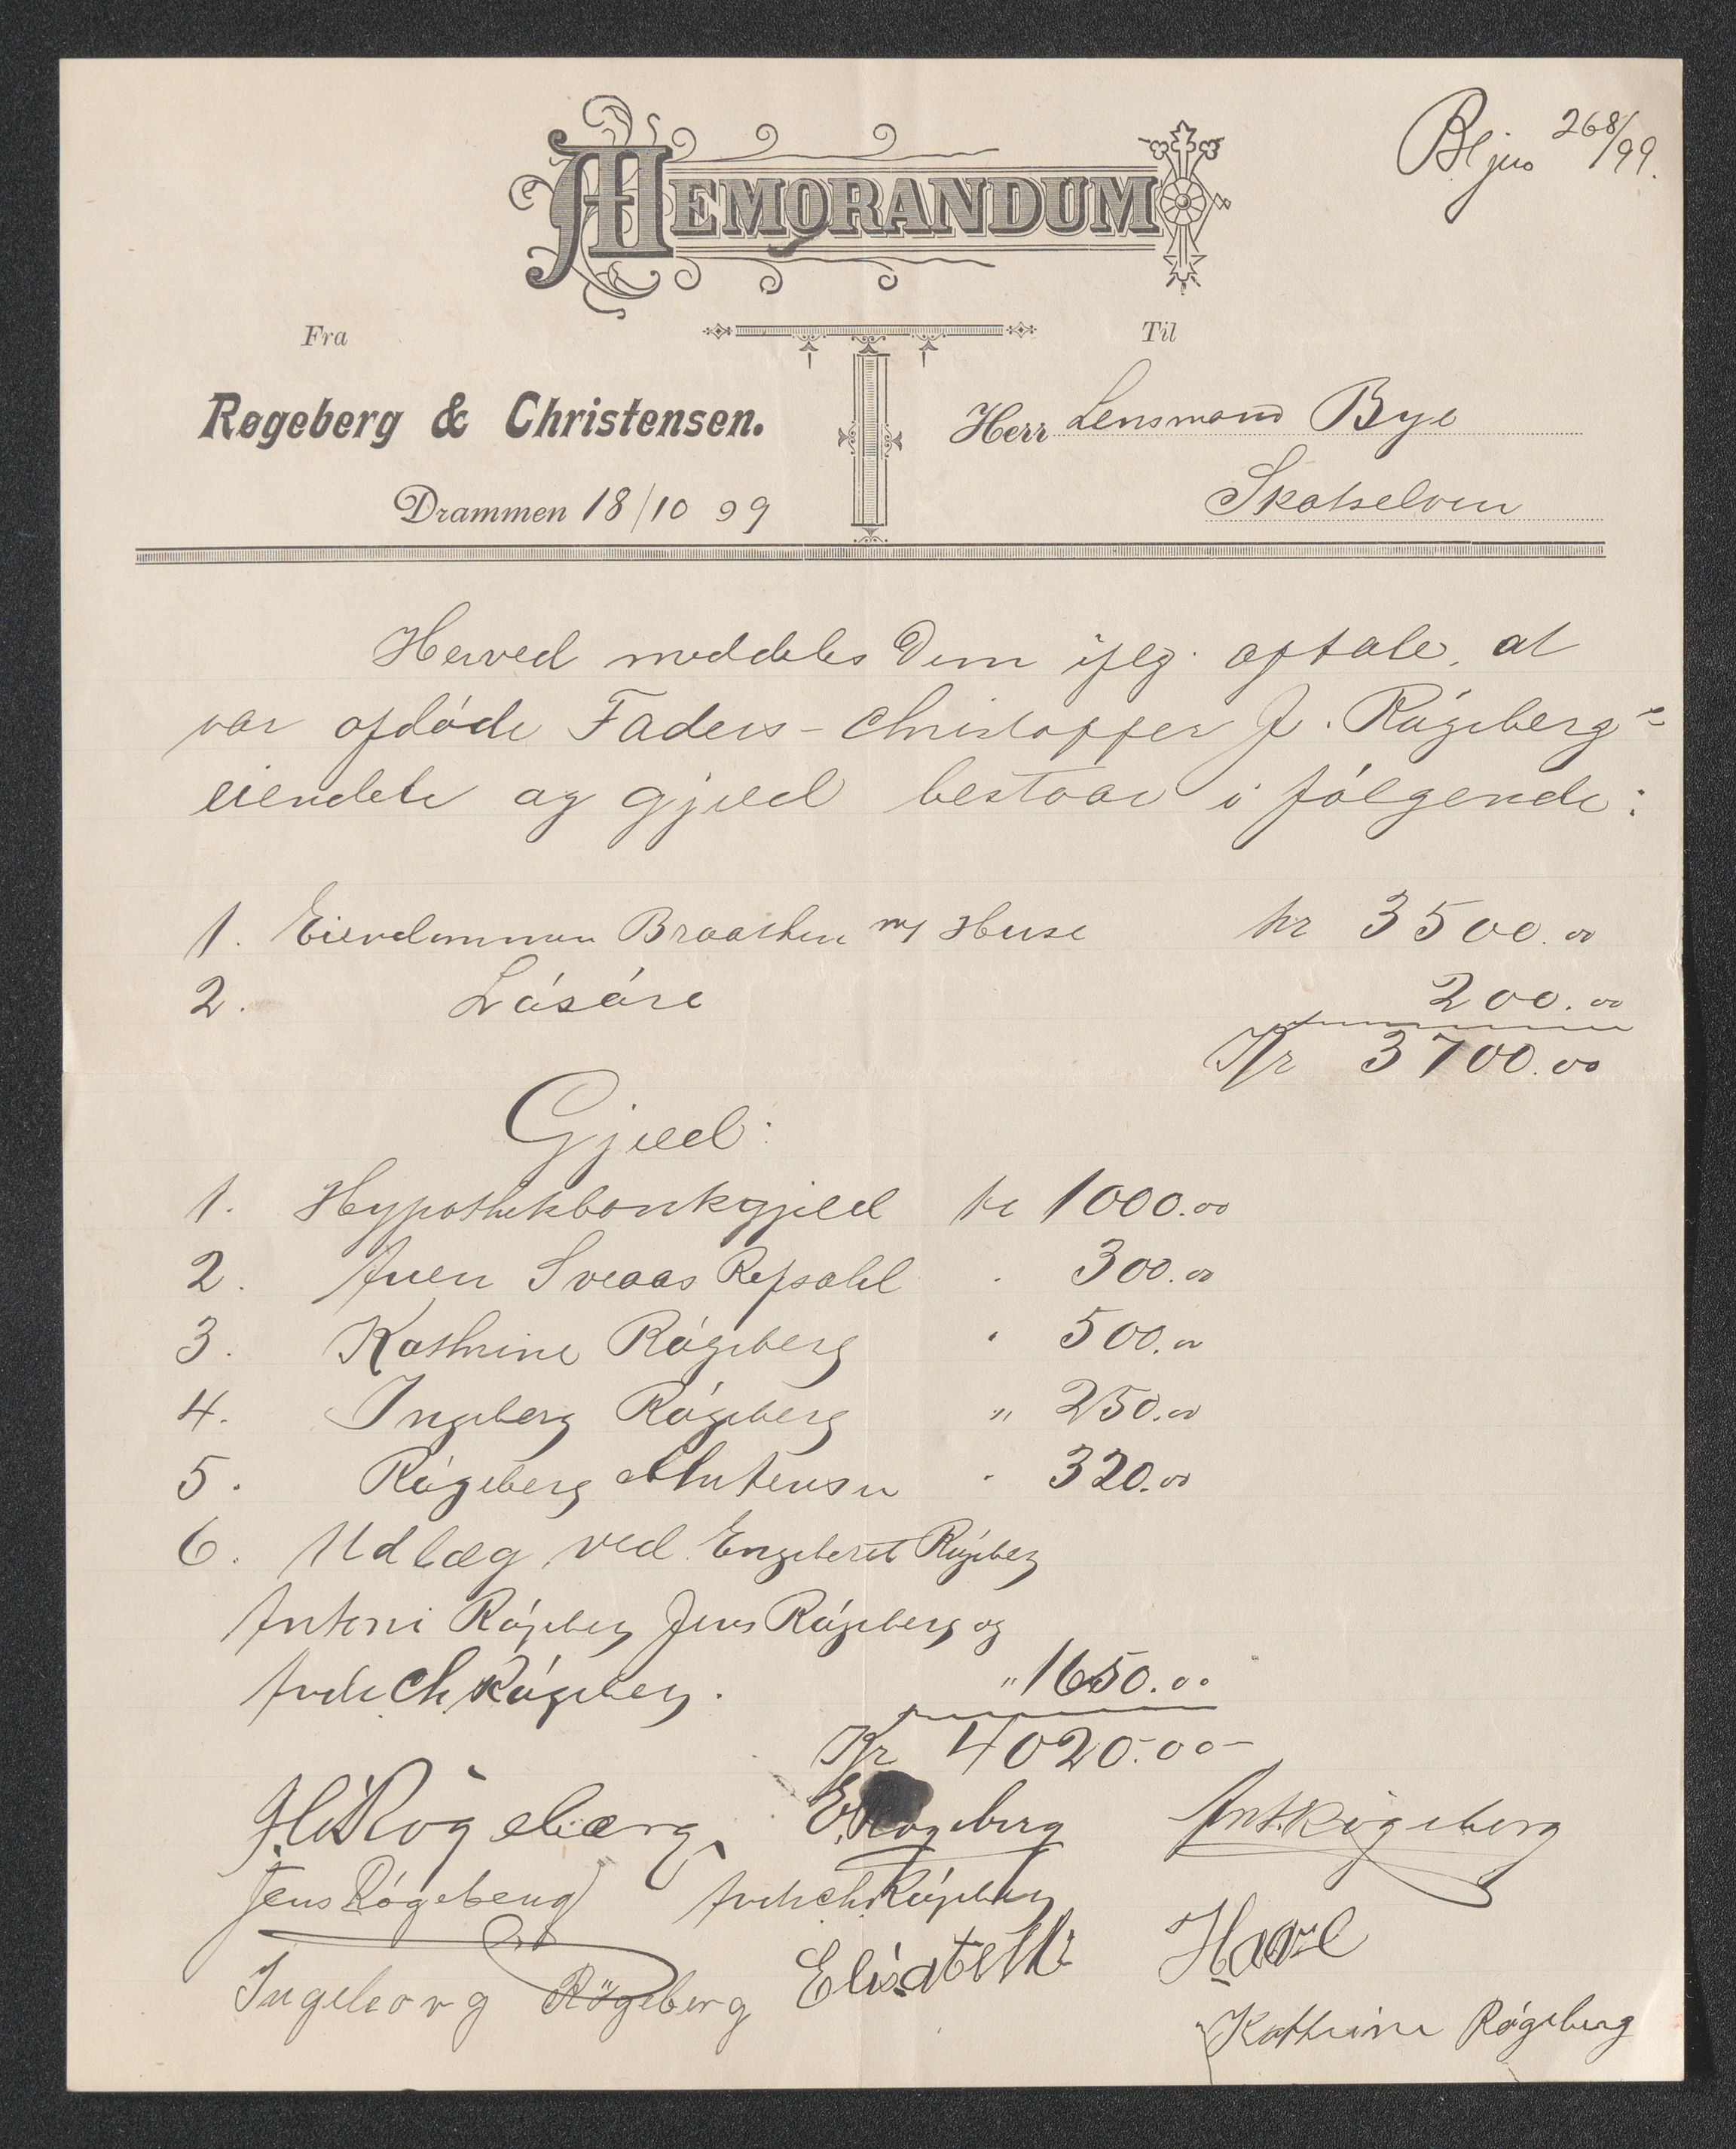 Bljno 268/99.
MEMORANDUM
Fra
Til
Røgeberg & Christensen.
Herr Lensmand Bye
Drammen 18/10 99
Skotselven
Herved meddeles Dem ifølg. aftale, at
vor afdøde Faders - Christoffer J. Røgeberg's
eiendele og gjæld bestaar i følgende:
1. Eiendommen Braathen m/ Huse kr 3500.00
2. Løsøre 200.00
Kr 3700.00
Gjæld:
1. Hypothekbankgjæld kr 1000.00
2. Sveaas Refsahl . 300.00
3. Kathrine Røgeberg . 500.00
4. Ingeberg Røgeberg " 250.00
5. Røgeberg . 320.00
6. Udlæg ved Engebret Røgeberg
Antoni Røgeberg Jens Røgeberg og
Ch Røgeberg. " 1650.00
Kr 4020.00
Røgebærg E Røgeberg Ant. Røgeberg
Jens Røgeberg Ch. Røgeberg
Elisabeth Havel
Ingeborg Røgeberg
Kathrine Røgeberg